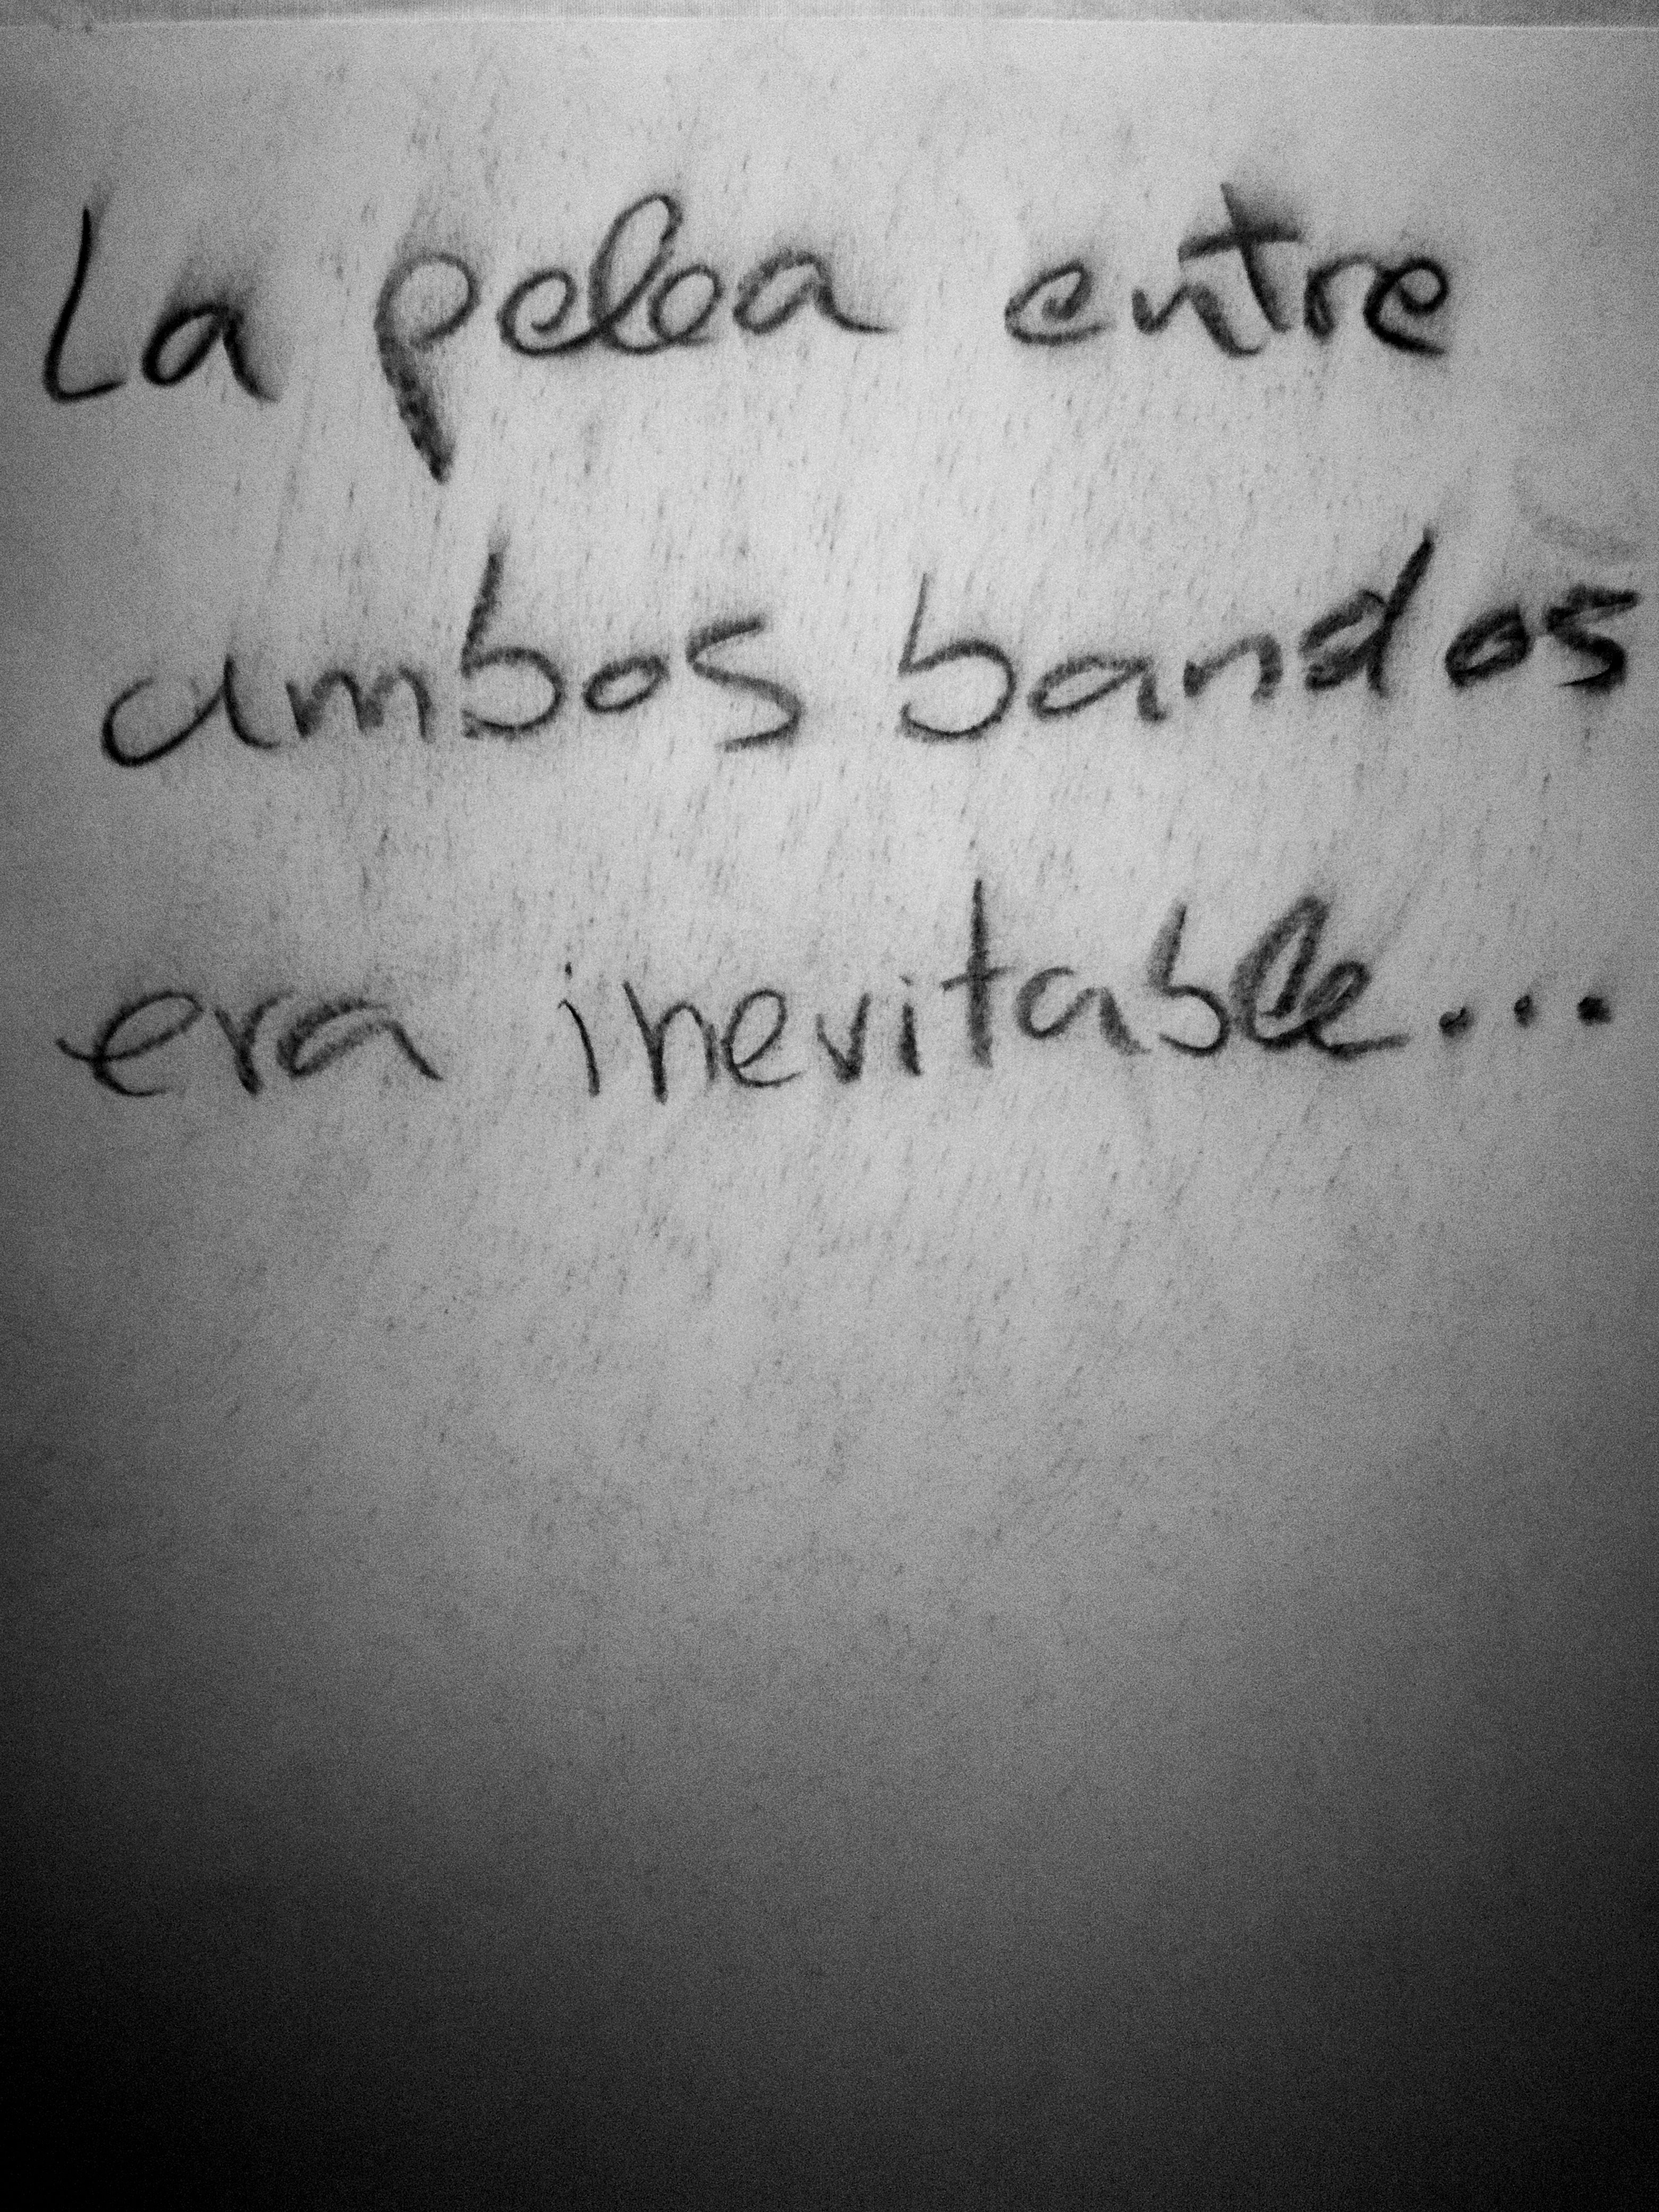 La pelea entre
ambos bandos
era inevitable...